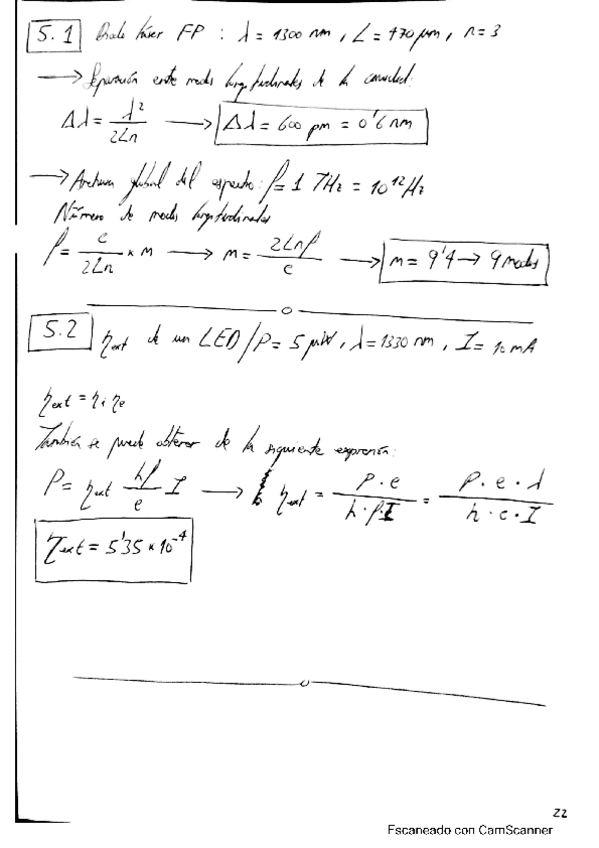 5.1 Diodo láser FP : λ = 1300 nm, L = 470 μm, n = 3
→ Separación entre modos longitudinales de la cavidad:
Δλ = λ² / 2Ln → Δλ = 600 pm = 0'6 nm
→ Anchura global del espectro: f = 1 THz = 10¹² Hz
Número de modos longitudinales
f = c / 2Ln × m → m = 2Lnf / c → m = 9'4 → 9 modos
5.2 η_ext de un LED / P = 5 μW, λ = 1330 nm, I = 10 mA
η_ext = η_i η_e
También se puede obtener de la siguiente expresión:
P = η_ext hf / e I → η_ext = P · e / h · f I = P · e · λ / h · c · I
η_ext = 5'35 × 10⁻⁴
22
Escaneado con CamScanner